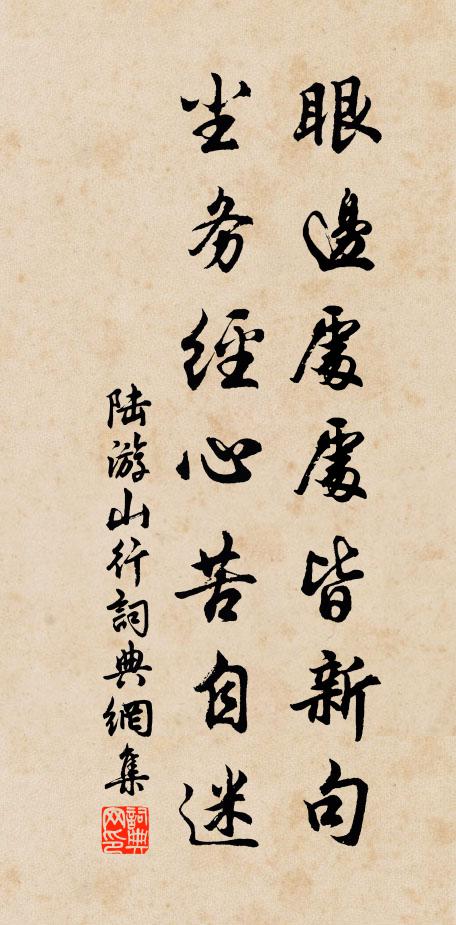 眼邊處處皆新句
尘务經心苦自迷
陆游山行詞典網集
詞典网印